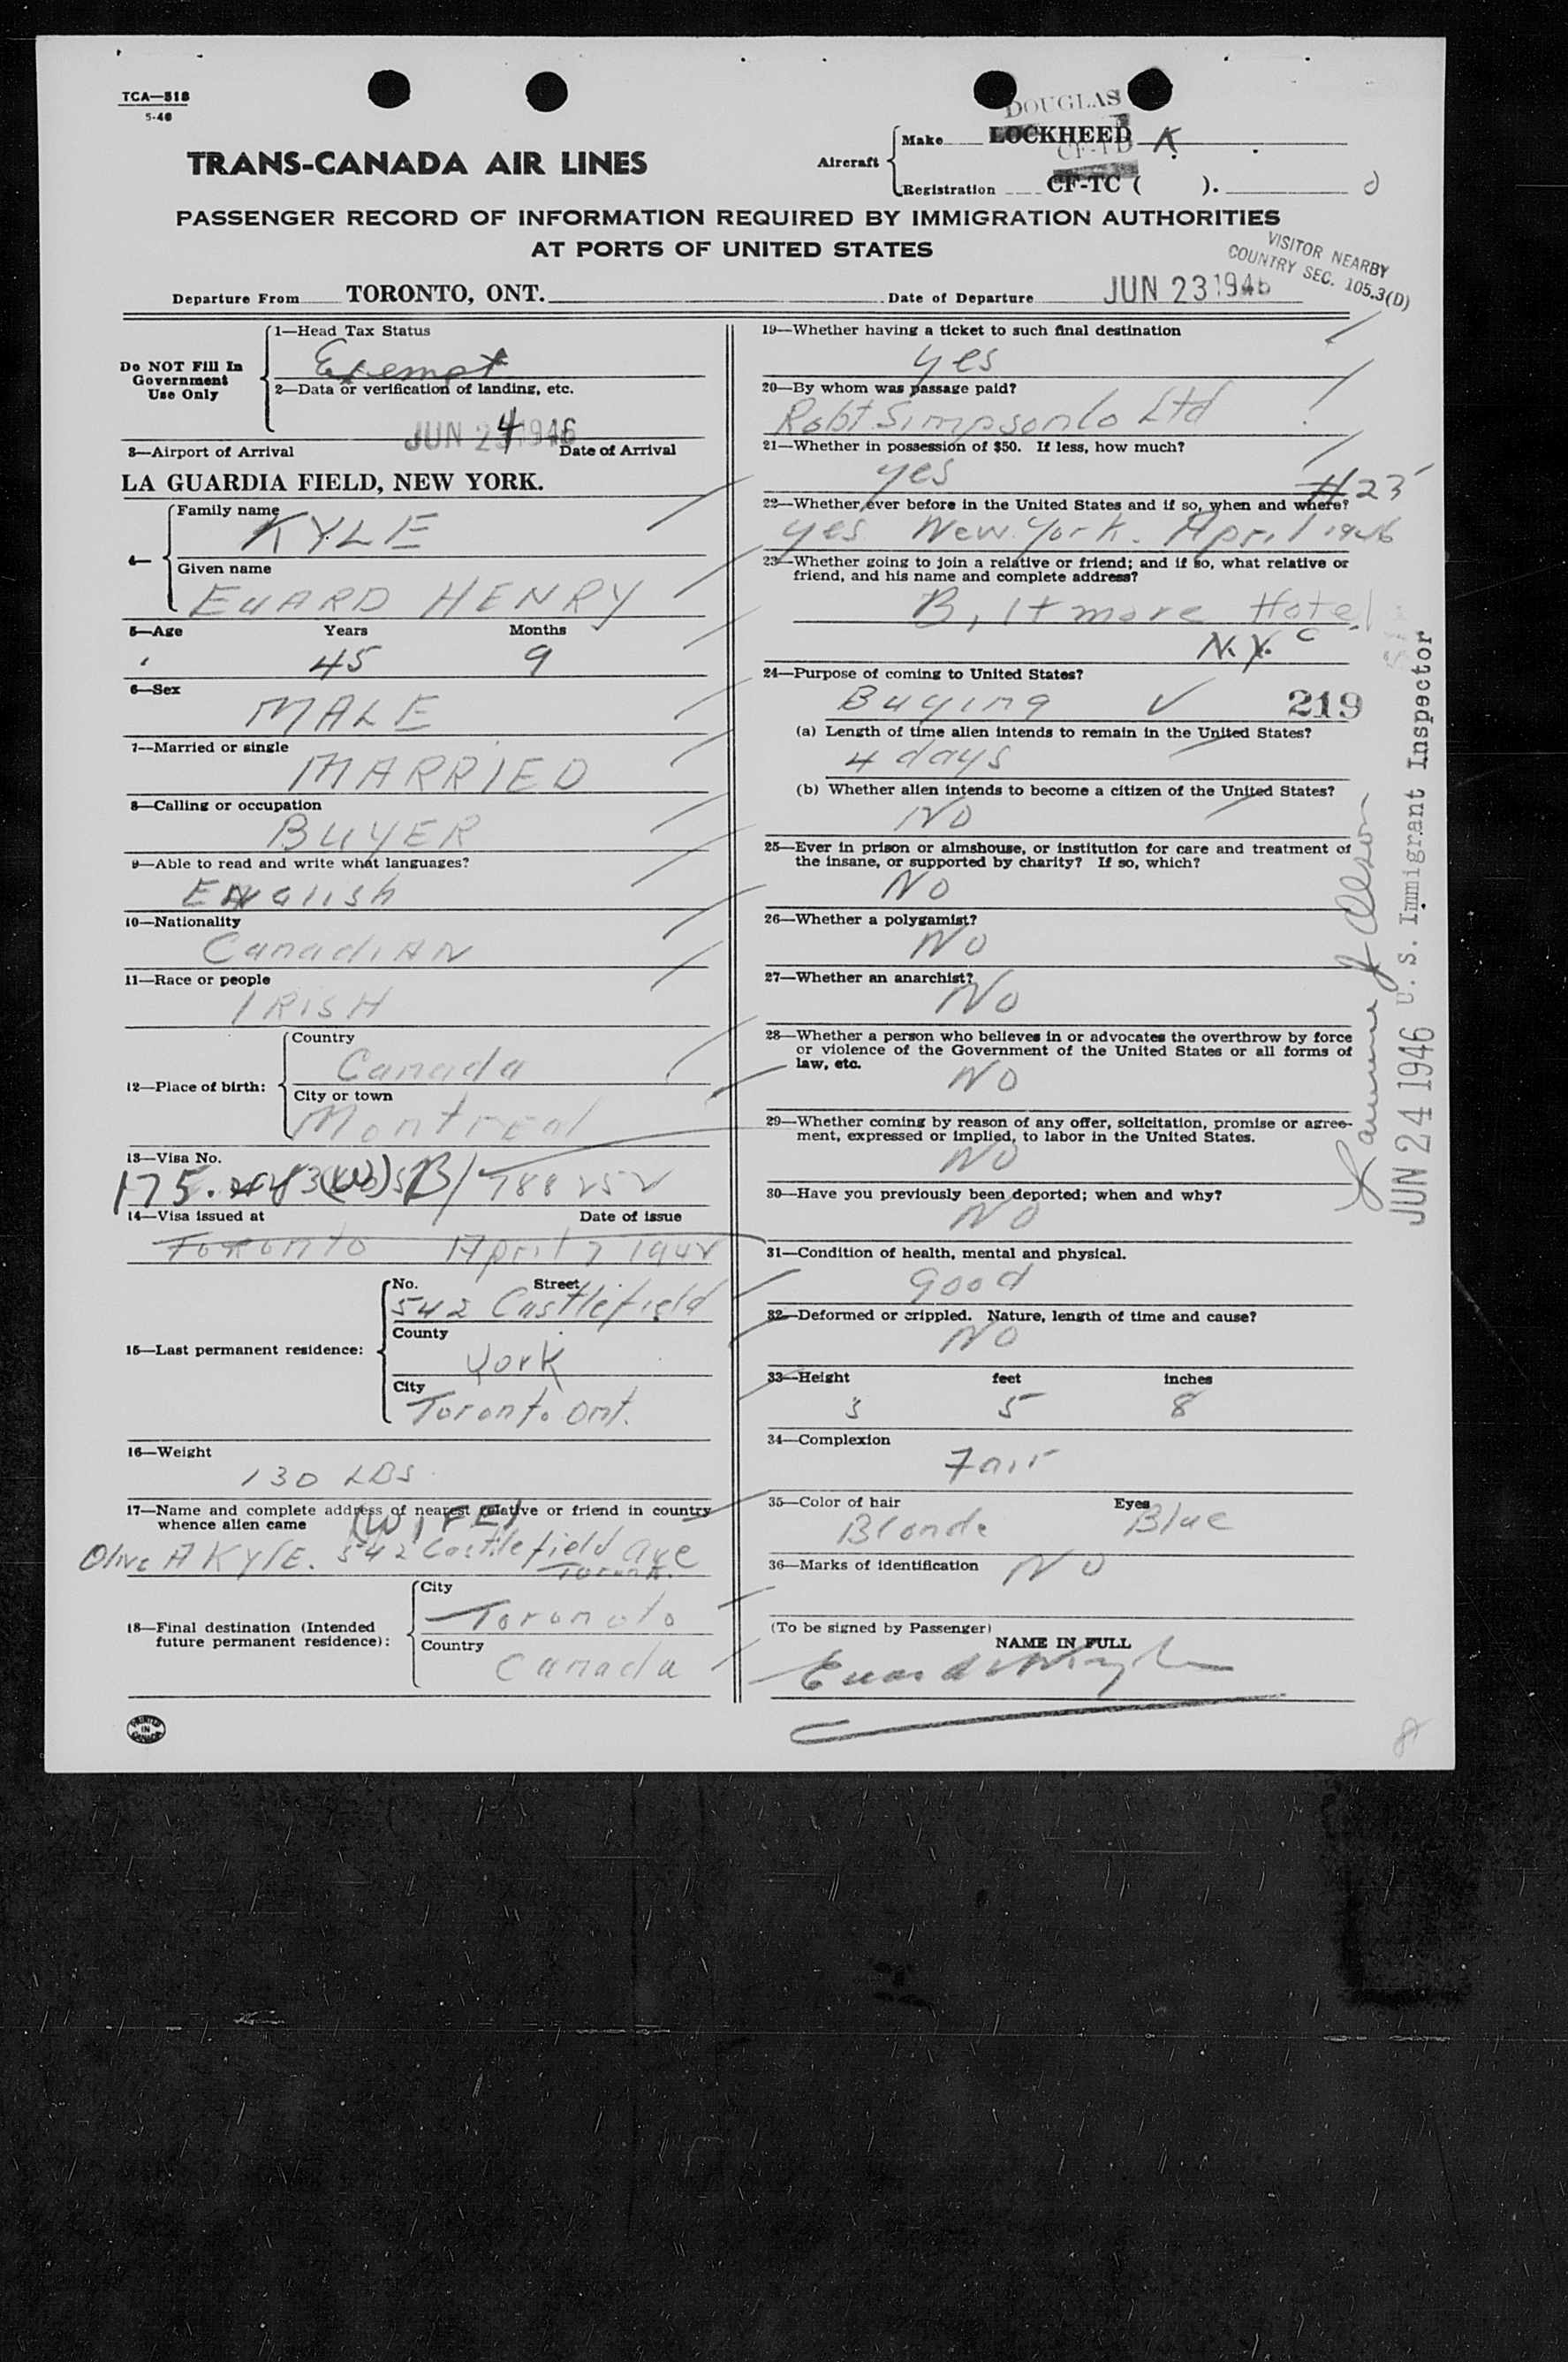 TCA—518
5-46
DOUGLAS
Make LOCKHEED
CF-TD K
TRANS-CANADA AIR LINES
Aircraft
Registration CF-TC ( ).
PASSENGER RECORD OF INFORMATION REQUIRED BY IMMIGRATION AUTHORITIES
AT PORTS OF UNITED STATES
VISITOR NEARBY
COUNTRY SEC. 105.3(D)
Departure From TORONTO, ONT. Date of Departure JUN 23 1946
Do NOT Fill In
Government
Use Only
1—Head Tax Status
Exempt
2—Data or verification of landing, etc.
JUN 24 1946
3—Airport of Arrival Date of Arrival
LA GUARDIA FIELD, NEW YORK.
4—
Family name
KYLE
Given name
EUARD HENRY
5—Age Years Months
45 9
6—Sex
MALE
7—Married or single
MARRIED
8—Calling or occupation
BUYER
9—Able to read and write what languages?
English
10—Nationality
CanadiAN
11—Race or people
IRISH
12—Place of birth:
Country
Canada
City or town
Montreal
13—Visa No.
175.
14—Visa issued at Date of issue
Toronto April 7
15—Last permanent residence:
No. Street
542 Castlefield
County
York
City
Toronto Ont.
16—Weight
130 LBS.
17—Name and complete address of nearest relative or friend in country
whence alien came
(WIFE)
Olive A KYLE. 542 Castlefield ave
18—Final destination (Intended
future permanent residence):
City
Toronoto
Country
Canada
PRINTED
IN
CANADA
19—Whether having a ticket to such final destination
yes
20—By whom was passage paid?
Robt Simpson Co Ltd
21—Whether in possession of $50. If less, how much?
yes
#23
22—Whether ever before in the United States and if so, when and where?
yes New York. April 1946
23—Whether going to join a relative or friend; and if so, what relative or
friend, and his name and complete address?
Biltmore Hotel
N.Y. C
24—Purpose of coming to United States?
Buying 219
(a) Length of time alien intends to remain in the United States?
4 days
(b) Whether alien intends to become a citizen of the United States?
NO
25—Ever in prison or almshouse, or institution for care and treatment of
the insane, or supported by charity? If so, which?
NO
26—Whether a polygamist?
NO
27—Whether an anarchist?
NO
28—Whether a person who believes in or advocates the overthrow by force
or violence of the Government of the United States or all forms of
law, etc.
NO
29—Whether coming by reason of any offer, solicitation, promise or agree-
ment, expressed or implied, to labor in the United States.
NO
30—Have you previously been deported; when and why?
NO
31—Condition of health, mental and physical.
Good
32—Deformed or crippled. Nature, length of time and cause?
NO
33—Height feet inches
5 8
34—Complexion
Fair
35—Color of hair Eyes
Blonde Blue
36—Marks of identification NO
(To be signed by Passenger)
NAME IN FULL
JUN 24 1946 U. S. Immigrant Inspector